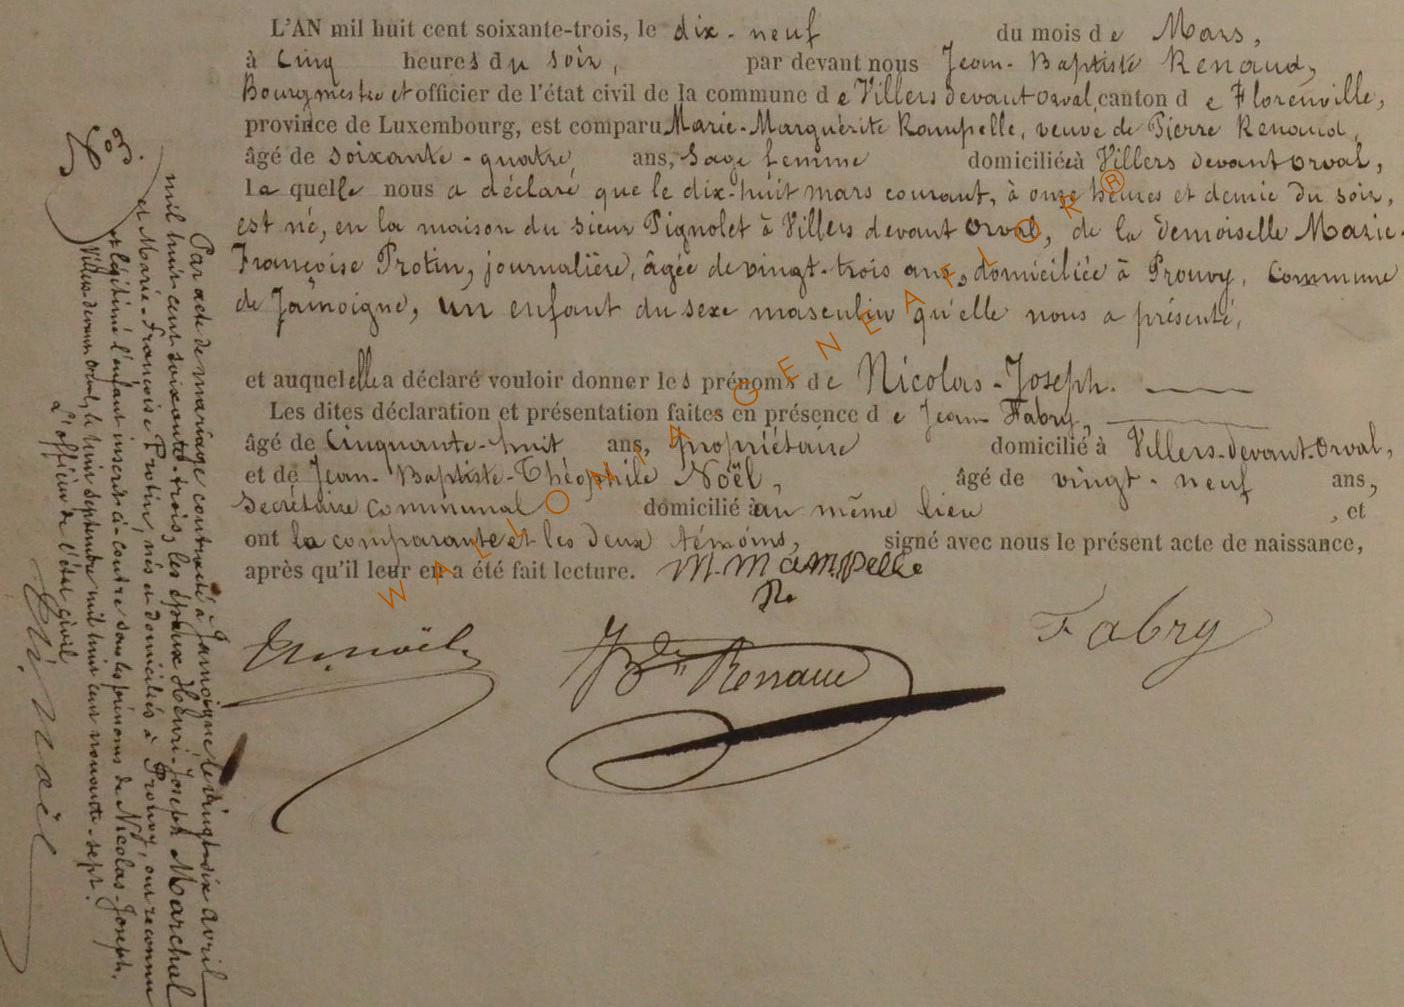 L'AN mil huit cent soixante-trois, le dix-neuf du mois de Mars,
à cinq heures du soir, par devant nous Jean-Baptiste Renaud,
Bourgmestre et officier de l'état civil de la commune de Villers devant orval, canton de Florenville,
province de Luxembourg, est comparu Marie-Marguerite Rampelle, veuve de Pierre Renaud,
âgé de soixante-quatre ans, Sage femme domiciliée à Villers devant orval,
laquelle nous a déclaré que le dix-huit mars courant, à onze heures et demie du soir,
est né, en la maison du sieur Pignolet à Villers devant orval, de la demoiselle Marie-
Françoise Protin, journalière, âgée de vingt-trois ans, domiciliée à Prouvy, commune
de Jamoigne, un enfant du sexe masculin qu'elle nous a présenté,
et auquel elle a déclaré vouloir donner les prénoms de Nicolas-Joseph.
Les dites déclaration et présentation faites en présence de Jean Fabry,
âgé de cinquante-huit ans, propriétaire domicilié à Villers-devant-Orval,
et de Jean-Baptiste-Théophile Noël, âgé de vingt-neuf ans,
Secrétaire communal domicilié au même lieu, et
ont la comparante et les deux témoins, signé avec nous le présent acte de naissance,
après qu'il leur en a été fait lecture. M. M Rampelle
Th. noël Jn Bte Renaud Fabry
No 3.
Par acte de mariage contracté à Jamoigne le vingt-six avril
mil huit cent soixante-trois, les époux Henri-Joseph Marchal
et Marie-Françoise Protin, nés et domiciliés à Prouvy, ont reconnu
et légitimé l'enfant inscrit ci-contre sous les prénoms de Nicolas-Joseph.
Villers-devant-Orval, le huit septembre mil huit cent nonante-sept.
L'officier de l'état civil
Th. Noël
WALLONIA - GENEAFLOR®